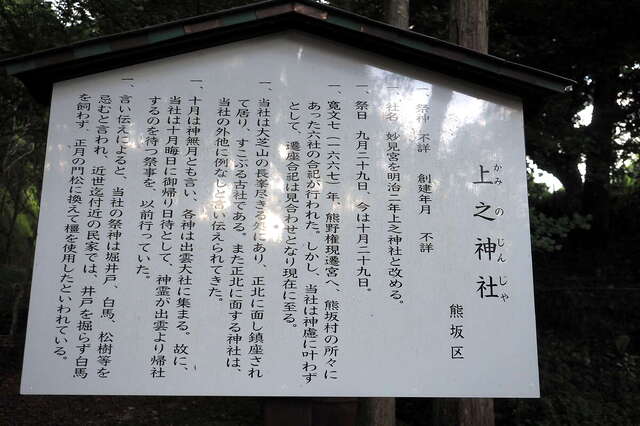 上之神社
かみのじんじゃ
熊坂区
一、祭神 不詳 創建年月 不詳
一、社名 妙見宮を明治二年上之神社と改める。
一、祭日 九月二十九日、今は十月二十九日。
一、寛文七(一六六七)年、熊野権現遷宮へ、熊坂村の所々に
あった六社の合記が行われた。しかし、当社は神慮に叶わず
として、遷座合記は見合わせとなり現在に至る。
一、当社は大芝山の長峯尽きる外にあり、正北に面し鎮座され
て居り、すこぶる古社である。また正北に面する神社は、
当社の外他に例なしと言い伝えられてきた。
一、十月は神無月とも言い、各神は出雲大社に集まる。故に、
当社は十月晦日に御帰り日待として、神霊が出雲より帰社
するのを待つ祭事を、以前行っていた。
一、言い伝えによると、当社の祭神は堀井戸、白馬、松樹等を
忌むと言われ、近世迄付近の民家では、井戸を掘らず白馬
を飼わず、正月の門松に換えて橿を使用したといわれている。